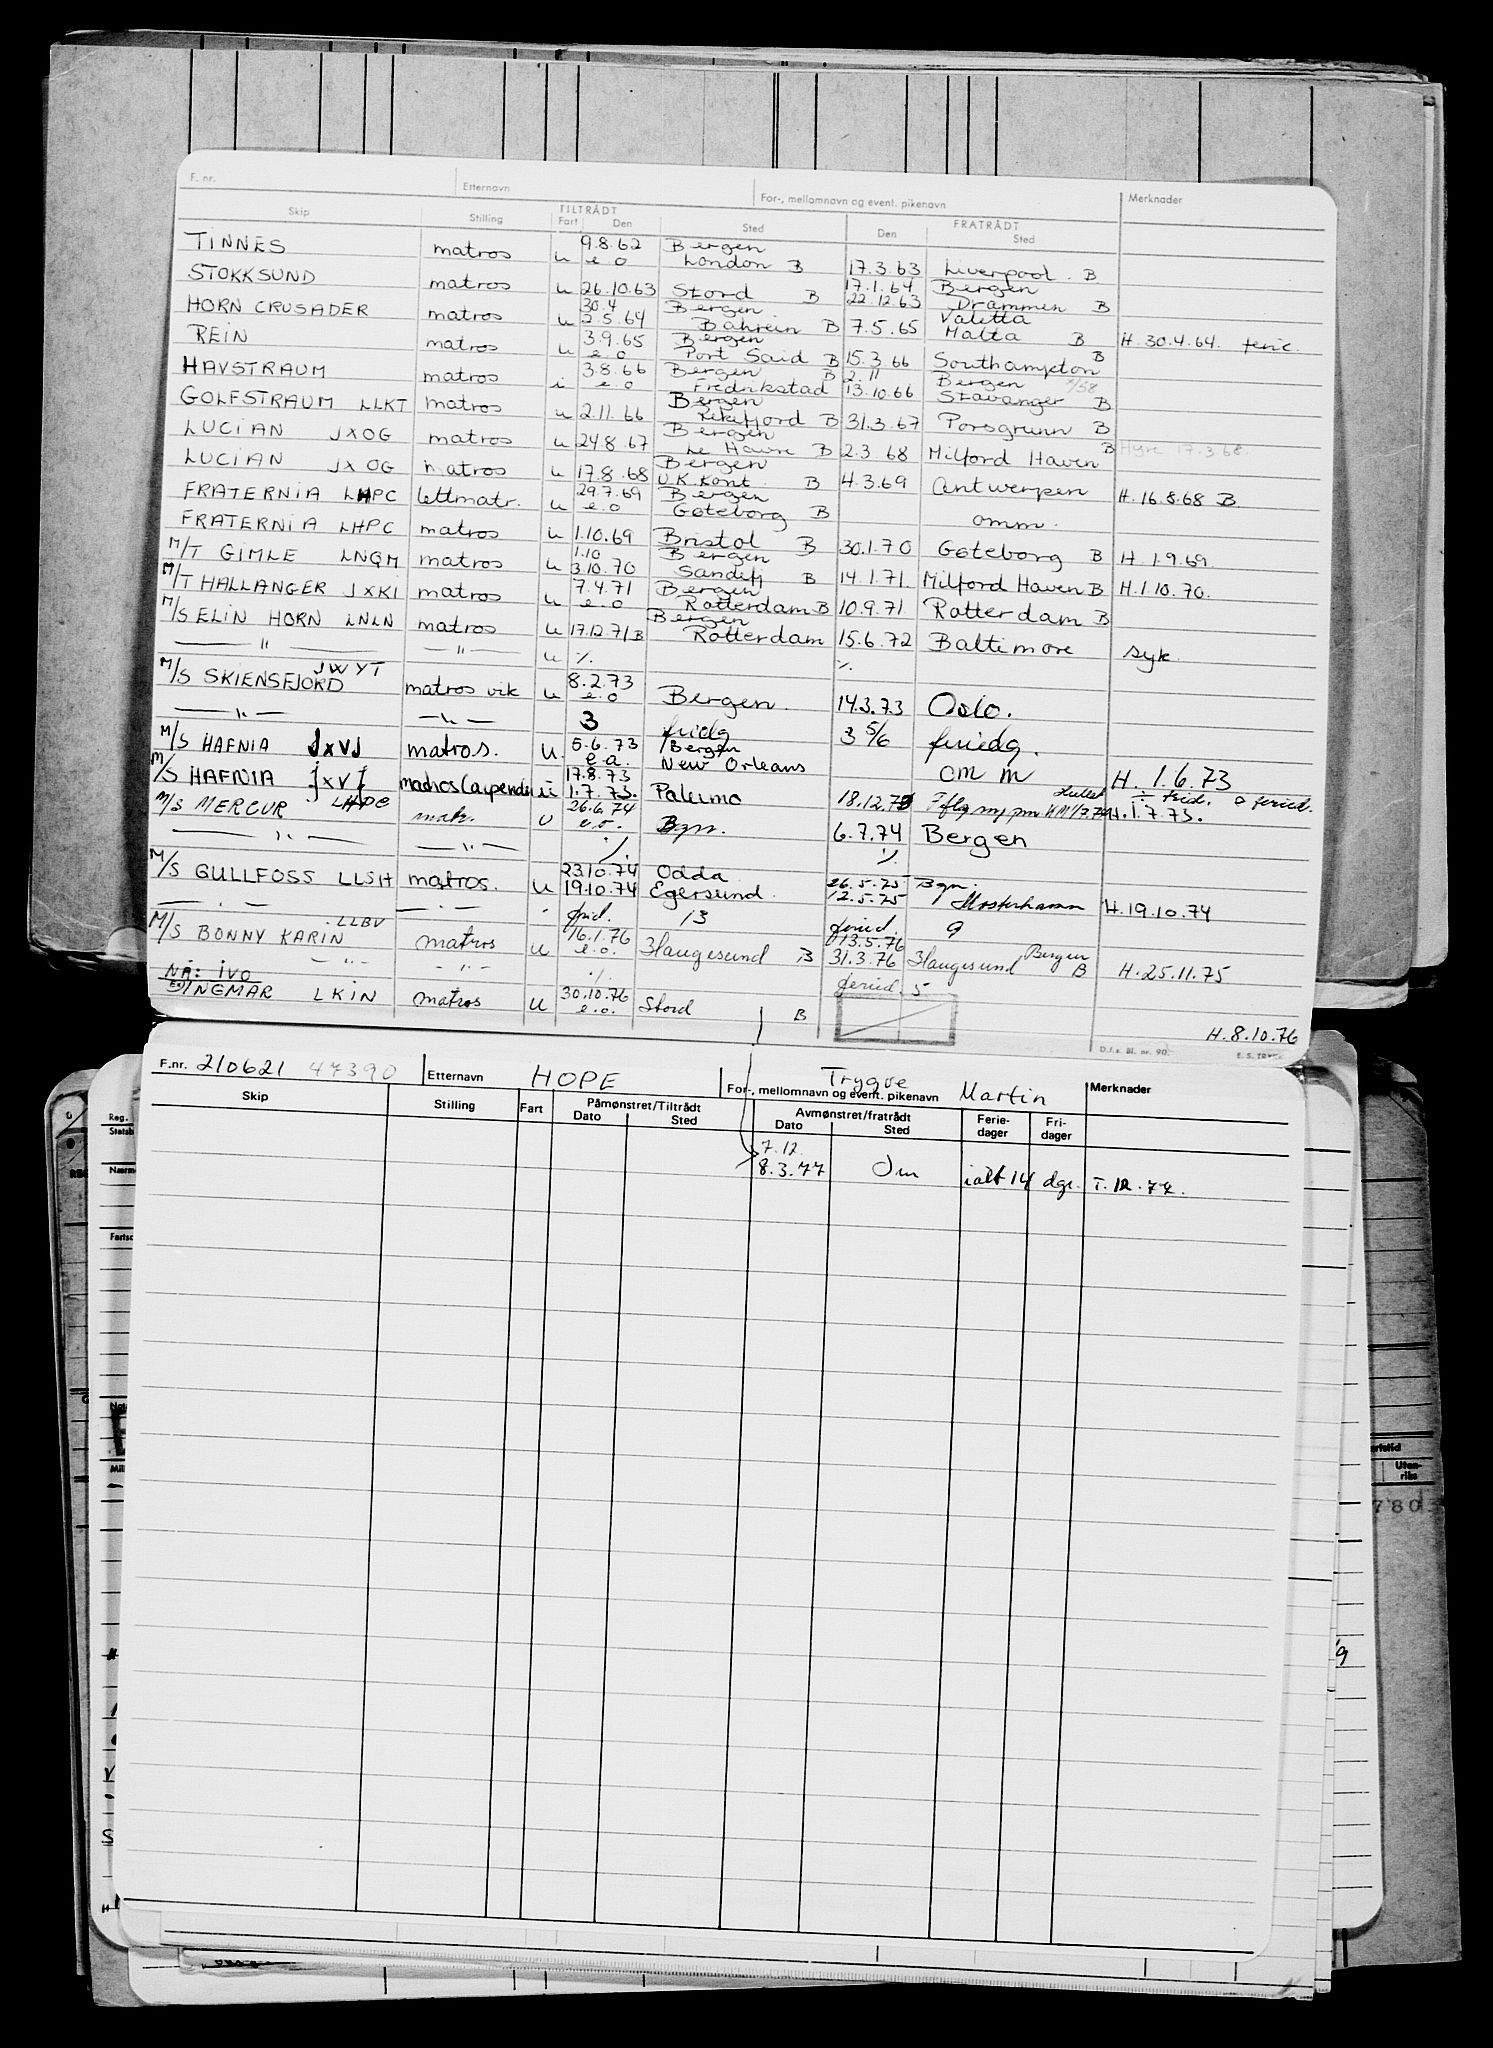 F. nr. Etternavn For-, mellomnavn og event. pikenavn Merknader
Skip Stilling TILTRÅDT Fart Den Sted Den FRATRÅDT Sted
TINNES matros u 9.8.62 e.o Bergen London B 17.3.63 Liverpool. B
STOKKSUND matros u 26.10.63 Stord B 17.1.64 22.12.63 Bergen Drammen B
HORN CRUSADER matros u 30.4 2.5.64 Bergen Bahrein B 7.5.65 Valetta Malta B H. 30.4.64. feric.
REIN matros u 3.9.65 e.o Bergen Port Said B 15.3.66 Southampton B
HAVSTRAUM matros i 3.8.66 e.o Bergen B Fredrikstad 2.11 13.10.66 Bergen Stavanger B
GOLFSTRAUM LLKT matros u 2.11.66 Bergen Rekefjord B 31.3.67 Porsgrunn B
LUCIAN JXOG matros u 24.8.67 Bergen Le Havre B 2.3.68 Milford Haven B Hyre 17.3.68.
LUCIAN JXOG matros u 17.8.68 Bergen UK Kont. B 4.3.69 Antwerpen H. 16.8.68 B
FRATERNIA LHPC lettmatr. u 29.7.69 e.o Bergen Gøteborg B omm.
FRATERNIA LHPC matros u 1.10.69 Bristol B 30.1.70 Gøteborg B H 1.9.69
M/T GIMLE LNQM matros u 1.10 3.10.70 Bergen Sandefj B 14.1.71. Milford Haven B H.1.10.70.
M/T HALLANGER JXKI matros u 7.4.71 e.o Bergen Rotterdam B 10.9.71 Rotterdam B
M/S ELIN HORN LNLN matros u 17.12.71 B Bergen Rotterdam 15.6.72 Baltimore syk.
— " — — " — u ./. ./.
M/S SKIENSFJORD JWYT matros vik u 8.2.73 e.o Bergen. 14.3.73 Oslo.
— " — — " — 3 fridg 3 5/6 feriedg.
M/S HAFNIA JXVJ matros. u. 5.6.73 e.o. Bergen New Orleans om m H. 1.6.73
M/S HAFNIA JXVJ u 17.8.73 1.7.73. Palermo 18.12.73 H. 1.7.73.
M/S MERCUR LHDC matr. u 26.6.74 e.o. Bgn. 6.7.74 Bergen
— " — — " — ./. ./.
M/S GULLFOSS LLSH matros. u 23.10.74 19.10.74 Odda Egersund. 26.5.75 12.5.75 Bgn. Mosterhamn H.19.10.74
— " — — " — frid. 13 feried. 9
M/S BONNY KARIN LLBV matros u 16.1.76 e.o. Haugesund B 13.5.76 31.3.76 Haugesund Bergen B H.25.11.75
— " — — " — ./. feried. 5
NÅ: IVO
EX INGMAR LKIN matros u 30.10.76 e.o. Stord B H.8.10.76
D.f.s. Bl. nr. 90.
F.nr. 210621 47390 Etternavn HOPE For-, mellomnavn og event. pikenavn Trygve Martin Merknader
Skip Stilling Fart Påmønstret/Tiltrådt Dato Sted Avmønstret/fratrådt Dato Sted Ferie-dager Fri-dager
7.12.
8.3.77 Om ialt 14 dgr.
Reg.
Uten-
riks
780